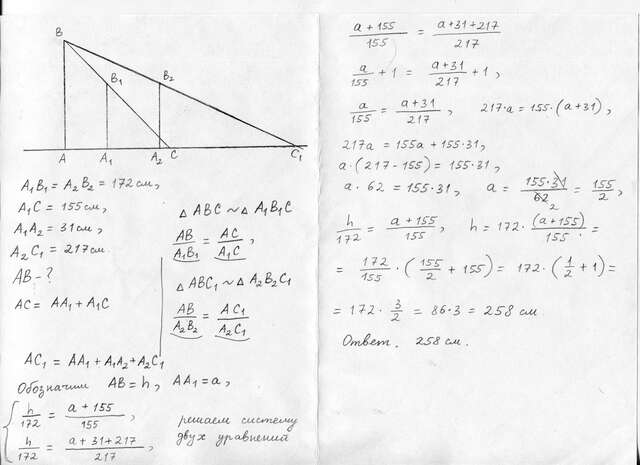 B
B₁
B₂
A
A₁
A₂
C
C₁
A₁B₁ = A₂B₂ = 172 см,
A₁C = 155 см,
A₁A₂ = 31 см,
A₂C₁ = 217 см.
AB - ?
AC = AA₁ + A₁C
△ ABC ~ △ A₁B₁C
AB/A₁B₁ = AC/A₁C,
△ ABC₁ ~ △ A₂B₂C₁
AB/A₂B₂ = AC₁/A₂C₁
AC₁ = AA₁ + A₁A₂ + A₂C₁
Обозначим AB = h, AA₁ = a,
h/172 = (a + 155)/155,
h/172 = (a + 31 + 217)/217,
решаем систему
двух уравнений
(a + 155)/155 = (a + 31 + 217)/217
a/155 + 1 = (a + 31)/217 + 1,
a/155 = (a + 31)/217, 217·a = 155·(a + 31),
217a = 155a + 155·31,
a·(217 - 155) = 155·31,
a·62 = 155·31, a = 155·31/62 2 = 155/2,
h/172 = (a + 155)/155, h = 172·(a + 155)/155 =
= 172/155 · (155/2 + 155) = 172·(1/2 + 1) =
= 172 · 3/2 = 86·3 = 258 см.
Ответ. 258 см.